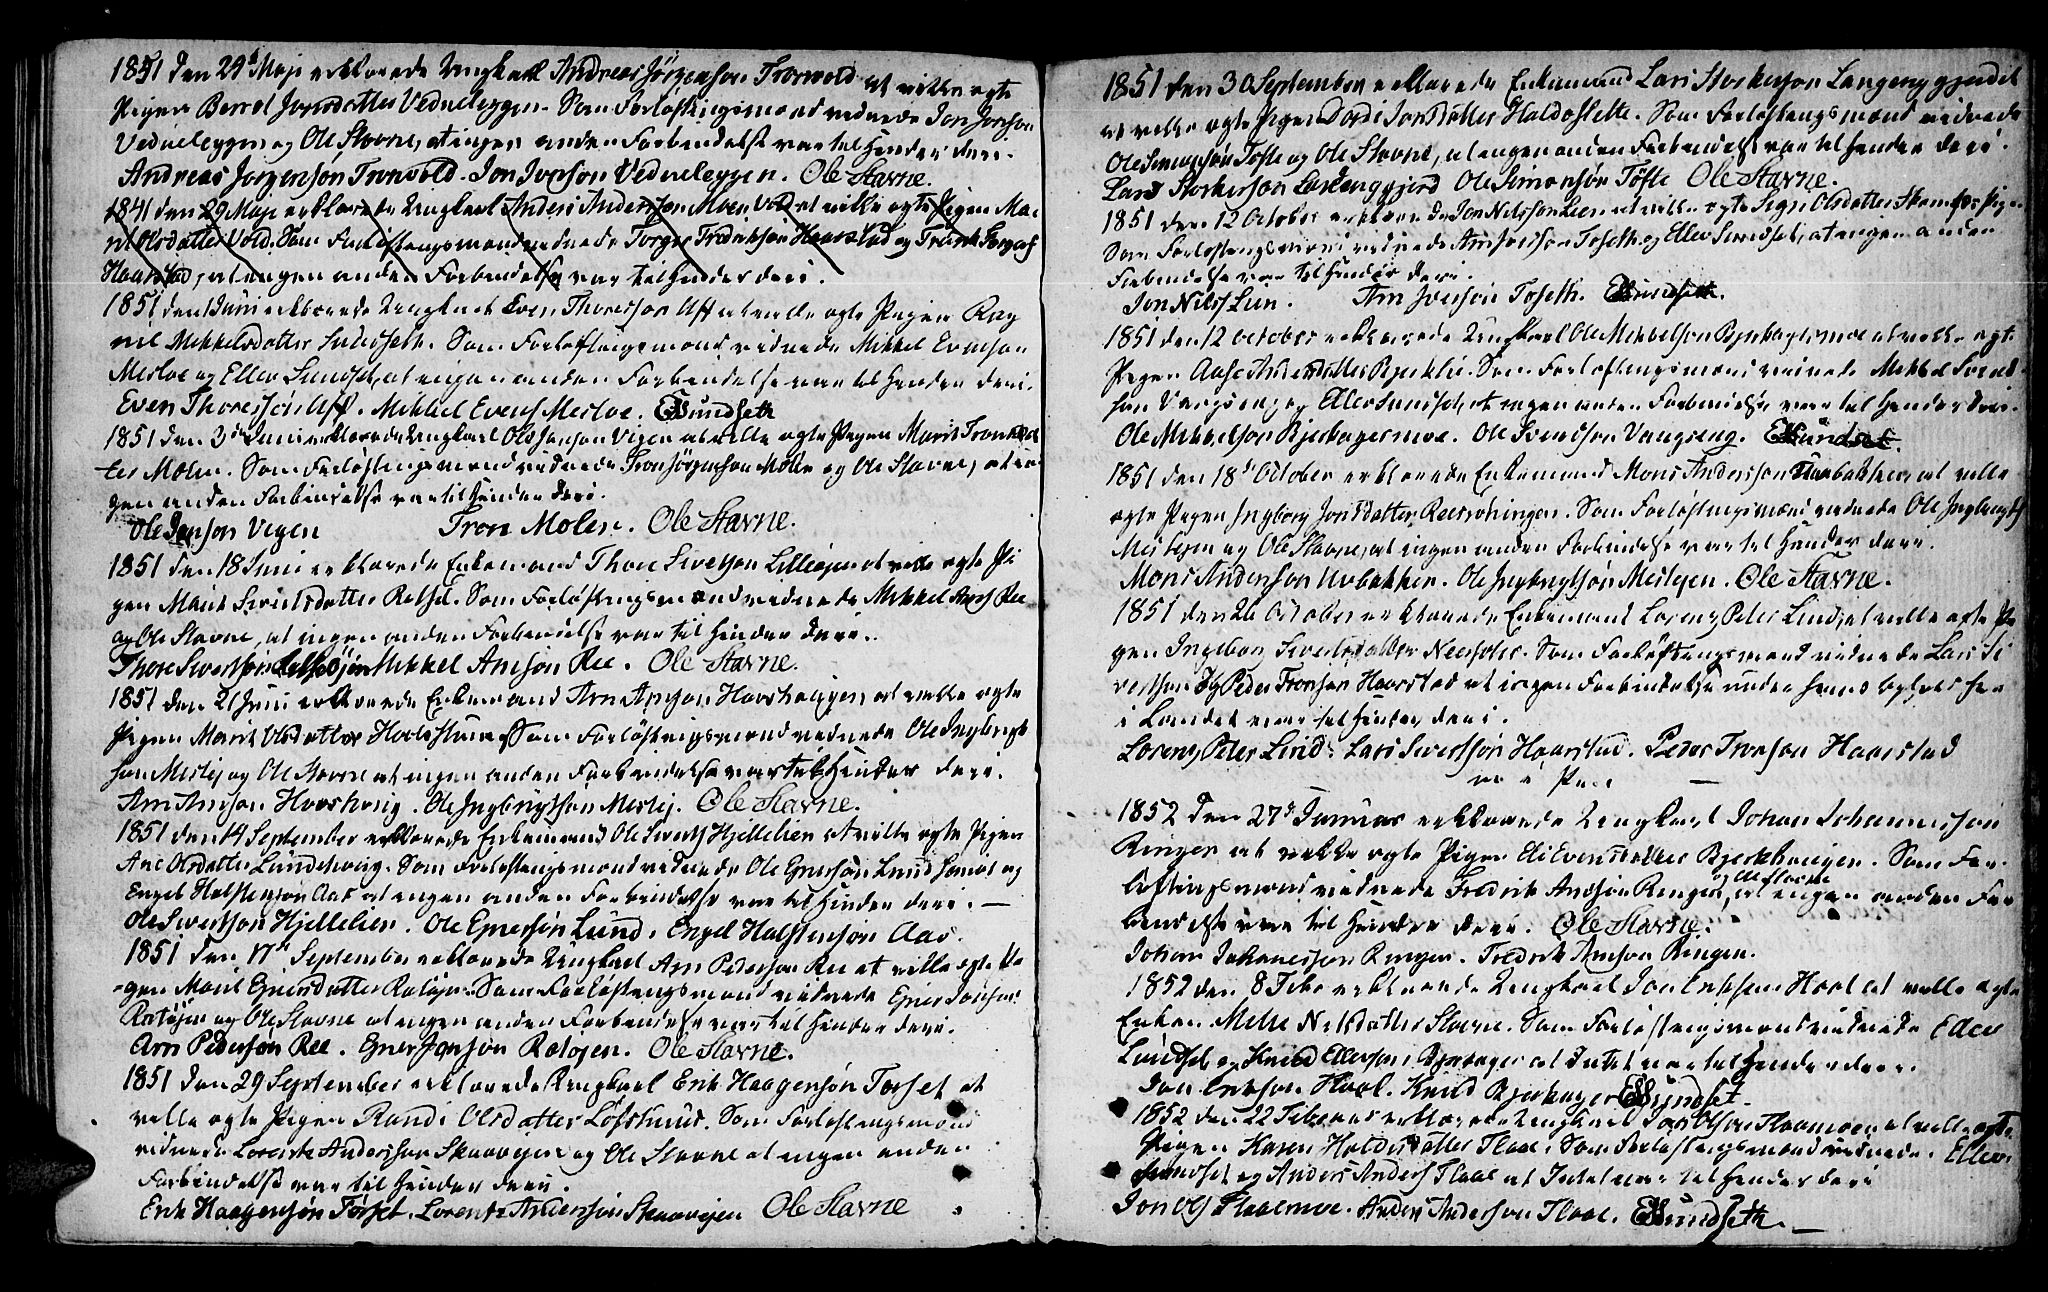 1851 den 29d Maji erklærede Ungkarl Andreas Jörgenson Tronvold at ville egte
Pigen Berret Jonsdatter Vedneleggen. Som Forlöftningsmænd vidnede Jon Jonson
Vedneleggen og Ole Stavne, at ingen anden Forbindelse var til Hinder deri.
Andreas Jorgenson Tronvold. Jon Iverson Vedneleggen. Ole Stavne.
1841 den 29 Maji erklærede Ungkarl Anders Anderson Moen Vold at ville egte Pigen Ma-
rit Olsdatter Vold. Som Forlöftningsmænd vidnede Torger Fredrikson Haarstad og
Haarstad, at ingen anden Forbindelse var til Hinder deri.
1851 den Juni erklærede Ungkarl Even Thoresson Aff at ville egte Pigen Rag
nil Mekkelsdatter Sundseth. Som Forlöftningsmænd vidnede Mikkel Evenson
Mesloe og Ellev Sundset, at ingen anden Forbindelse var til Hinder deri.
Even Thoresson Aff. Mikkel Evens Mesloe. ESundseth
1851 den 3die Juni erklærede Ungkarl Ole Janson Vigen at ville egte Pigen Marit Tronsdat
ter Molen. Som Forlöftningsmænd vidnede Tron Jörgenson Molen og Ole Stavne, at in-
gen anden Forbindelse var til Hinder deri.
Ole Janson Vigen Tron Molen. Ole Stavne.
1851 den 18 Juni erklærede Enkemand Thore Sivertson Lilleöjen at ville egte Pi
gen Marit Sivertsdatter Retsel. Som Forlöftningsmænd vidnede Mekkel Arnes Ree
og Ole Stavne, at ingen anden Forbindelse var til Hinder deri.
Thore Sivertson Lilleöjen Mekkel Arneson Ree. Ole Stavne.
1851 den 21 Juni erklærede Enkemand Arn Arnson Hovshaugen at ville egte
Pigen Marit Olsdatter. Som Forlöftningsmænd vidnede Ole Ingbrigt
son Meslej og Ole Stavne at ingen anden Forbindelse var til Hinder deri.
Arn Arnson Hovshoug. Ole Ingbrigtson Meslej. Ole Stavne.
1851 den 14 September erklærede Enkemand Ole Siverts Hjellelien at ville egte Pigen
Ane Olsdatter Lundehoug. Som Forlöftningsmænd vidnede Ole Enerson Lund og
Engel Halstenson Aas at ingen anden Forbindelse var til Hinder deri. —
Ole Sivertson Hjellelien. Ole Enerson Lund. Engel Halstenson Aas.
1851 den 17de September erklærede Ungkarl Arn Pederson Ree at ville egte Pi
gen Marit Enersdatter Ratöjen. Som Forlöftningsmænd vidnede Ener Jonson
Ratöjen og Ole Stavne at ingen anden Forbindelse var til Hinder deri.
Arn Pederson Ree. Ener Jonson Ratojen. Ole Stavne.
1851 den 29 September erklærede Ungkarl Erik Haagensön Torset at
ville egte Pigen Randi Olsdatter Löfshuus. Som Forlöftningsmænd
vidnede Lorents Andersson Skaavejen og Ole Stavne at ingen anden
Forbindelse var til Hinder deri.
Erik Haagensön Törset. Lorents Andersson Skaavejen Ole Stavne
1851 den 30 September erklærede Enkemand Lars Storkerson Langenggjerdet
at ville egte Pigen Jordi Jonsdatter Haldoslette. Som Forlöftningsmænd vidnede
Ole Simonsön Töfte og Ole Stavne, at ingen anden Forbindelse var til Hinder deri.
Lars Storkerson Langenggjerd Ole Simonsön Töfte Ole Stavne.
1851 den 12 October erklærede Jon Nilsson Lien at ville egte Sigri Olsdatter
Som Forlöftningsmænd vidnede Arn Iverson Toseth og Ellev Sundset, at ingen anden
Forbindelse var til Hinder deri.
Jon Nils Lien. Arn Iverson Toseth. ESundseth.
1851 den 12 October erklærede Ungkarl Ole Mekkelson Bjerkagermoe at ville egte
Pigen Aase Arnsdatter Bjerklie. Som Forlöftningsmænd vidnede Mekkel Svend
son Vangseng og Ellev Sundset, at ingen anden Forbindelse var til Hinder deri.
Ole Mekkelson Bjerkagermoe. Ole Svendson Vangseng. ESundset.
1851 den 18de October erklærede Enkemand Mons Andersson Uvbakken, at ville
egte Pigen Ingborg Jonsdatter. Som Forlöftningsmænd vidnede Ole Ingbrigts
Meslejen og Ole Stavne, at ingen anden Forbindelse var til Hinder deri.
Mons Anderson Uvbakken. Ole Ingbrigtsön Meslejen. Ole Stavne.
1851 den 26 October erklærede Enkemand Lorenz Peter Lind, at ville egte Pi
gen Ingebor Sivertsdatter. Som Forlöftningsmænd vidnede Lars Si
vertson Og Peder Tronson Haarstad at ingen Forbindelse under hans Ophold her
i Landet var til Hinder deri.
Lorenz Peter Lind. Lars Sivertsön Haarstad. Peder Tronson Haarstad
1852 den 27de Januar erklærede Ungkarl Johan Johannesson
Ringen at ville egte Pigen Eli Evensdatter Bjerkhaugen. Som For-
löftningsmænd vidnede Fredrik Arneson Ringen og Ole Stavne, at ingen anden For
bindelse var til Hinder deri. Ole Stavne.
Johan Johannesson Ringen. Fredrik Arneson Ringen.
1852 den 8 Febr erklærede Ungkarl Jon Erikson Hoel at ville egte
Enken Melse Nilsdatter Stavne. Som Forlöftningsmænd vidnede Ellev
Sundset og Knud Ellevson Bjerkager at Intet var til Hinder deri.
Jon Erikson Hoel. Knud Bjerkager ESundset.
1852 den 22 Februar erklærede Ungkarl Jon Olson Flaamoen at ville egte
Pigen Karen Holdersdatter Flaae. Som Forlöftningsmænd vidnede Ellev
Sundset og Anders Anders Flaae at Intet var til Hinder deri
Jon Ols Flaaemoe. Anders Anderson Flaae. ESundseth. —